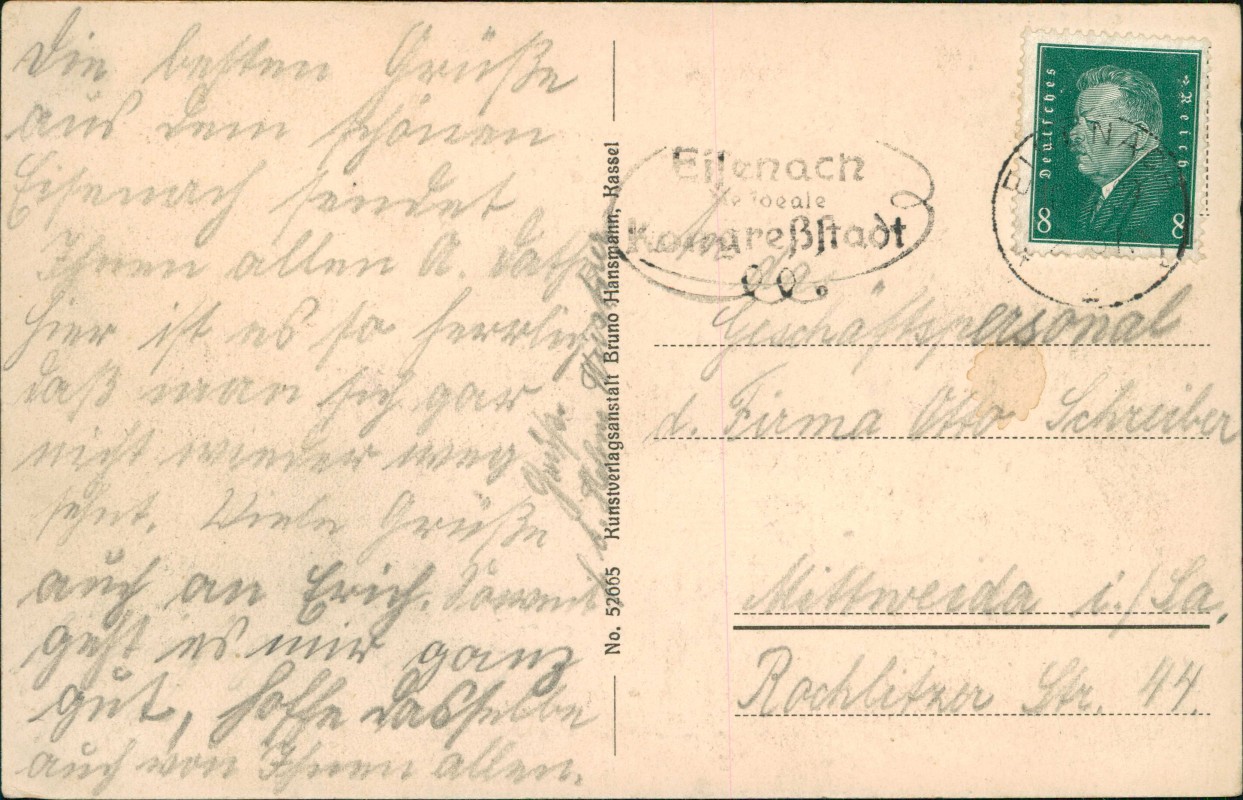 Die besten Grüße
aus dem schönen
Eisenach sendet
Ihnen allen A.
hier ist es so herrlich
daß man sich gar
nicht wieder weg
sehnt. Viele Grüße
auch an Erich. Soweit
geht es mir ganz
gut, hoffe dasselbe
auch von Ihnen allen.
No. 52665 Kunstverlagsanstalt Bruno Hansmann, Kassel
Eisenach
die ideale
Kongreßstadt
Deutsches Reich
8 8
EISENACH
Geschäftspersonal
d. Firma Otto Schreiber
Mittweida i./Sa.
Rochlitzer Str. 44.